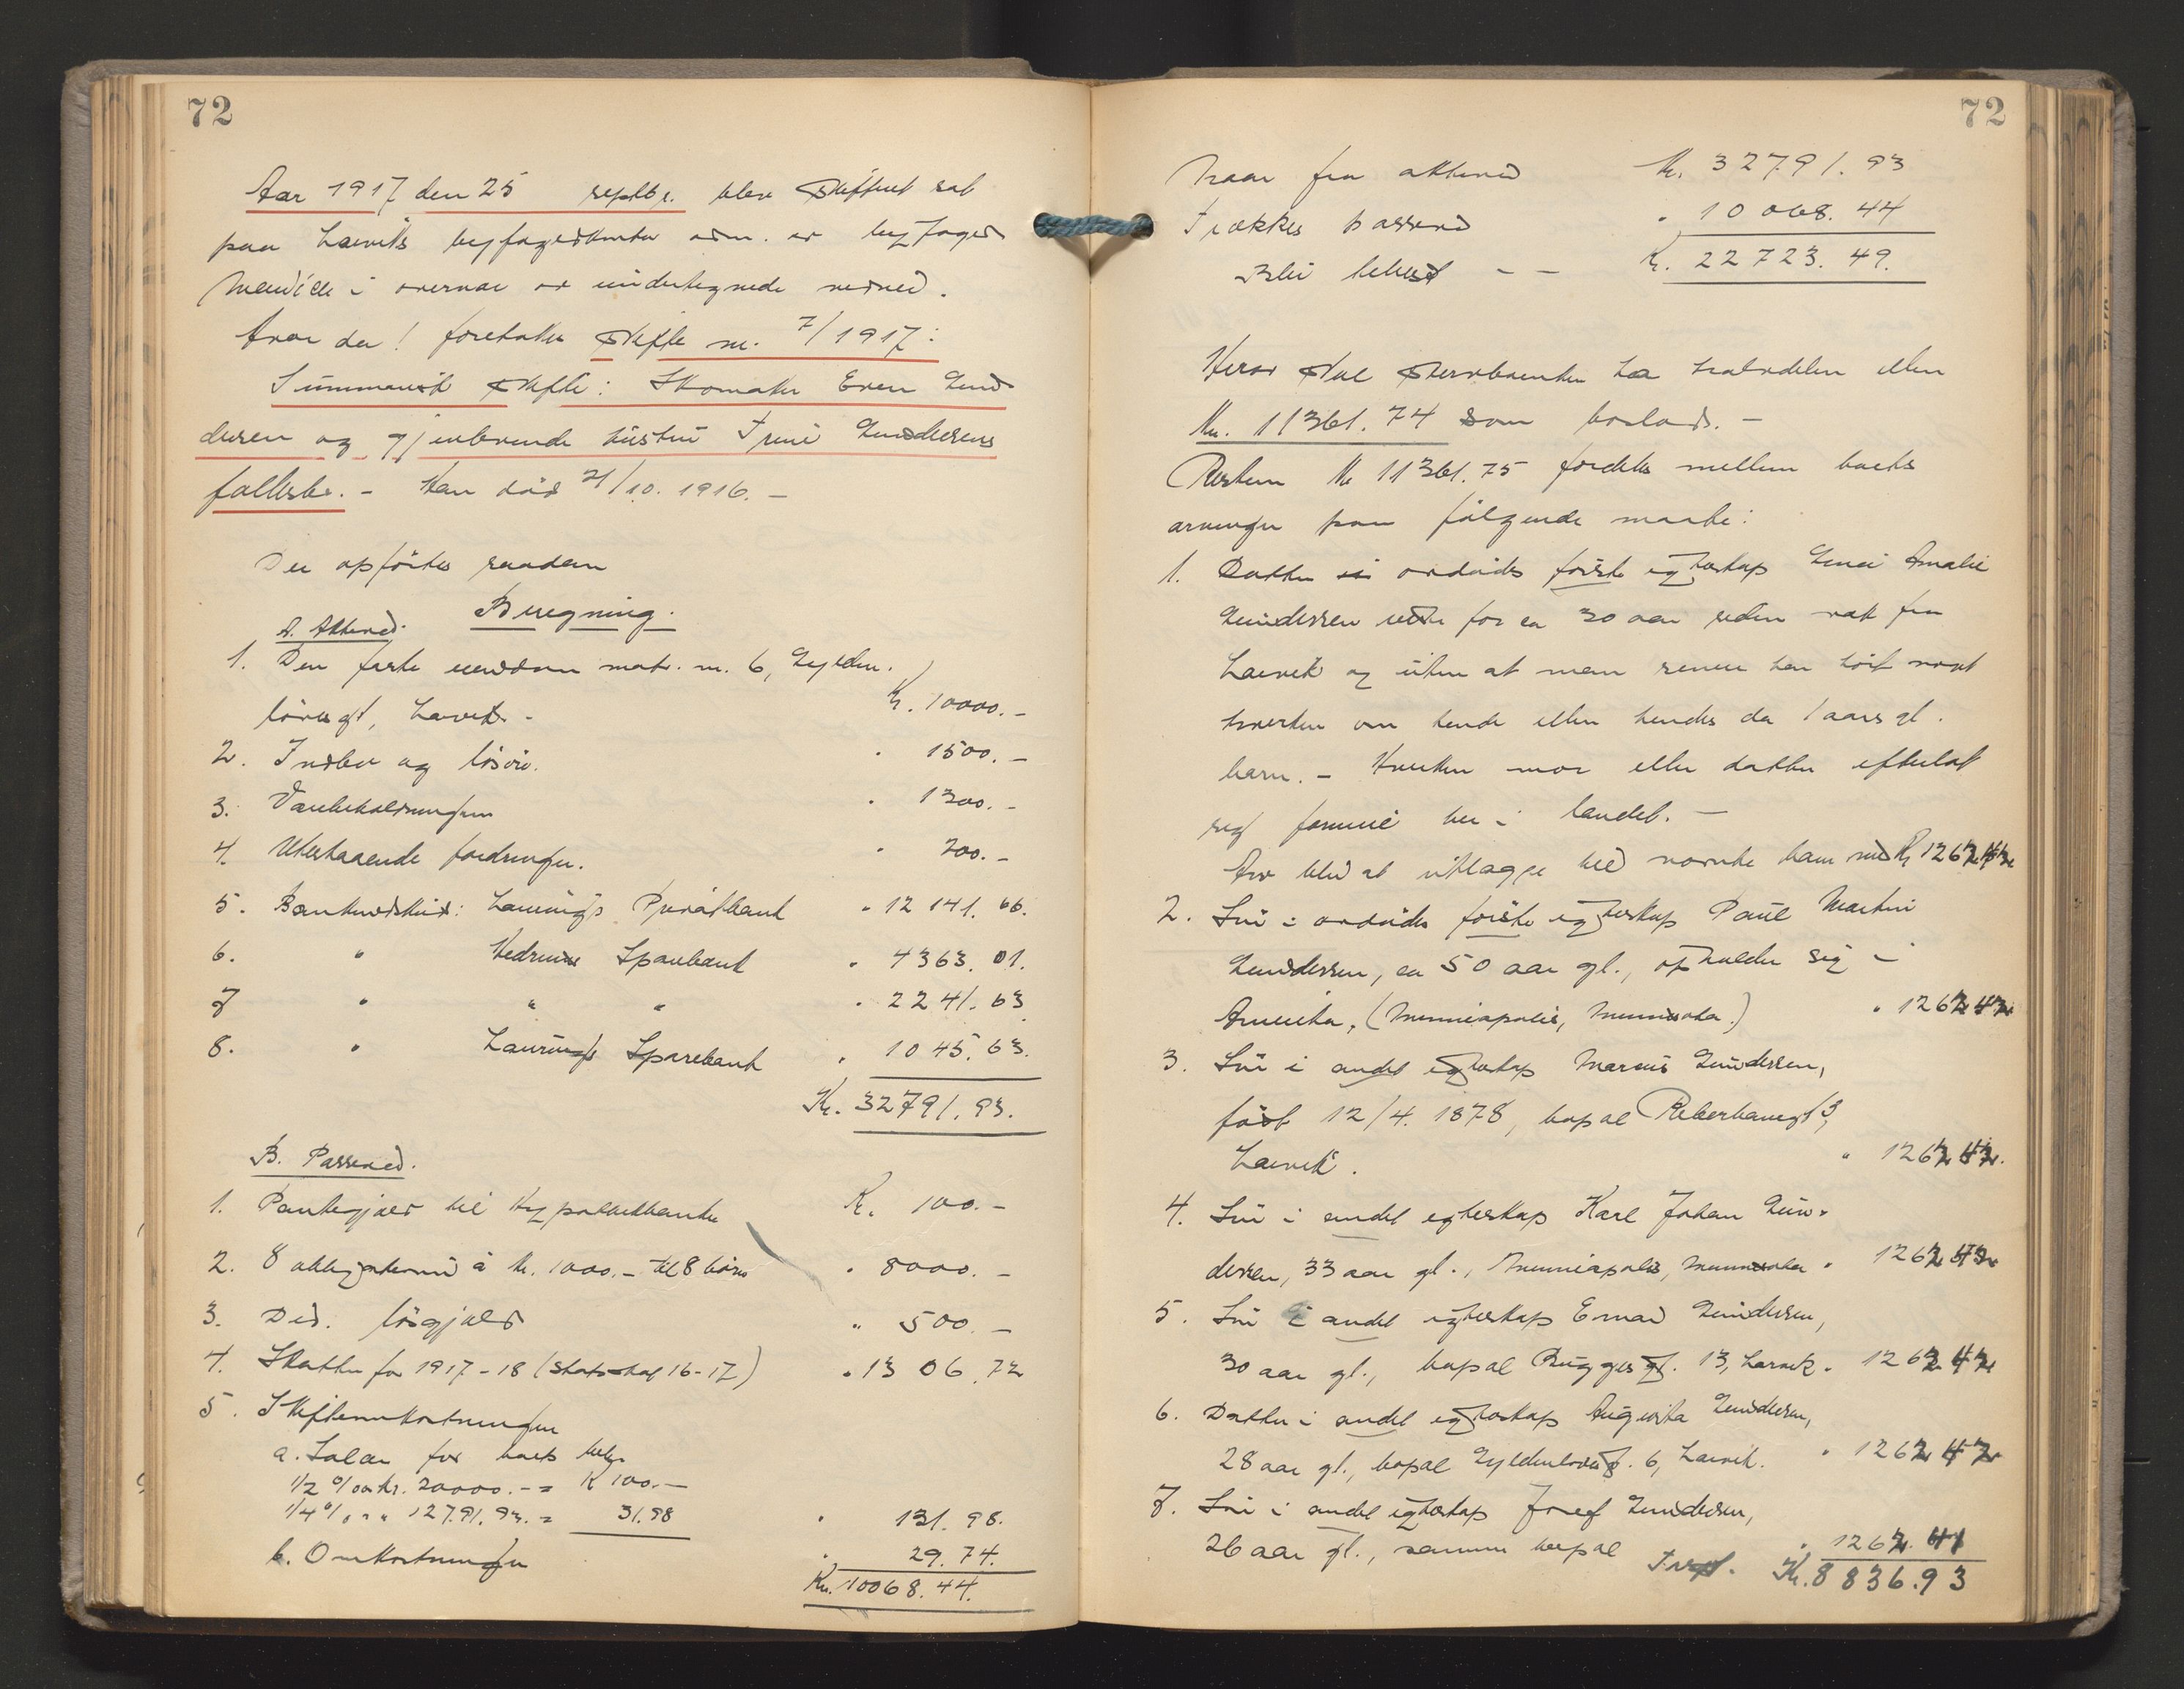 72
Aar 1917 den 25 septbr. blev skifteret sat
paa Larviks byfogedkontor adm. av byfoged
i overvær av undertegnede vidned.
Hvor da! foretokes skifte nr. 7/1917:
Summarisk skifte: Skomaker Even Gun-
dersen og gjenlevende hustru Trine Gundersens
fællesbo. - Han død 21/10. 1916. -
Der opførtes saadan
Beregning.
A. Aktiva.
1. Den faste eiendom matr. nr. 6, Gylden-
løvesgt, Larvik - Kr. 10000.-
2. Indbo og løsøre. " 1500.-
3. Varebeholdningen " 1300.-
4. Utestaaende fordringer. " 200.-
5. Bankindskud: Laurvigs Privatbank " 12141.66.
6. " Hedrums Sparebank " 4363.01.
7 " " " " 2241.63
8. " Laurvigs Sparebank " 1045.63.
Kr. 32791.93.
B. Passiva.
1. Pantegjæld til Hypothekbanken Kr. 100.-
2. 8 obligationer à kr. 1000.- til 8 børn " 8000.-
3. Div. løsgjæld " 500.-
4. Skatter for 1917-18 (Statsskat 16-17) " 1306.72
5. Skifteomkostninger
a. Salær for boets beh.
1/2 % av kr. 20000.- = K 100.-
1/4 % " " " 12791.93. = 31.98 " 131.98.
b. Omkostninger " 29.74.
Kr. 10068.44.
72
Naar fra aktiva Kr. 32791.93
trækkes passiva " 10068.44
Blir behold - - Kr. 22723.49.
Herav skal stervboenken ha halvdelen eller
Kr. 11361.74 som boslod. -
Resten Kr 11361.75 fordeles mellem boets
arvinger paa følgende maate:
1. Datter i avdødes første egteskap Amalie
Gundersen reiste for ca 30 aar siden væk fra
Larvik og uten at man senere har hørt noget
hverken om hende eller hendes da 1 aars gl.
barn. - Hverken mor eller datter efterlot
sig formue her i landet. -
Arv blir at utlægge ved nævnte barn med Kr 1262.42
2. Søn i avdødes første egteskap Paul Martin
Gundersen, ca 50 aar gl., opholder sig i
Amerika, (Minneapolis, Minnesota.) " 1262.42
3. Søn i andet egteskap Marius Gundersen,
født 12/4. 1878, bopæl Reberbanegt 3,
Larvik. " 1262.42.
4. Søn i andet egteskap Karl Johan Gun-
dersen, 33 aar gl., Minneapolis, Minnesota " 1262.42
5. Søn i andet egteskap Einar Gundersen,
30 aar gl., bopæl Bryggesgt. 13, Larvik. 1262.42
6. Datter i andet egteskap Gundersen,
28 aar gl., bopæl Gyldenløvesg. 6, Larvik. " 1262.42
7. Søn i andet egteskap Josef Gundersen,
26 aar gl., samme bopæl " 1262.41
Transp. Kr. 8836.93